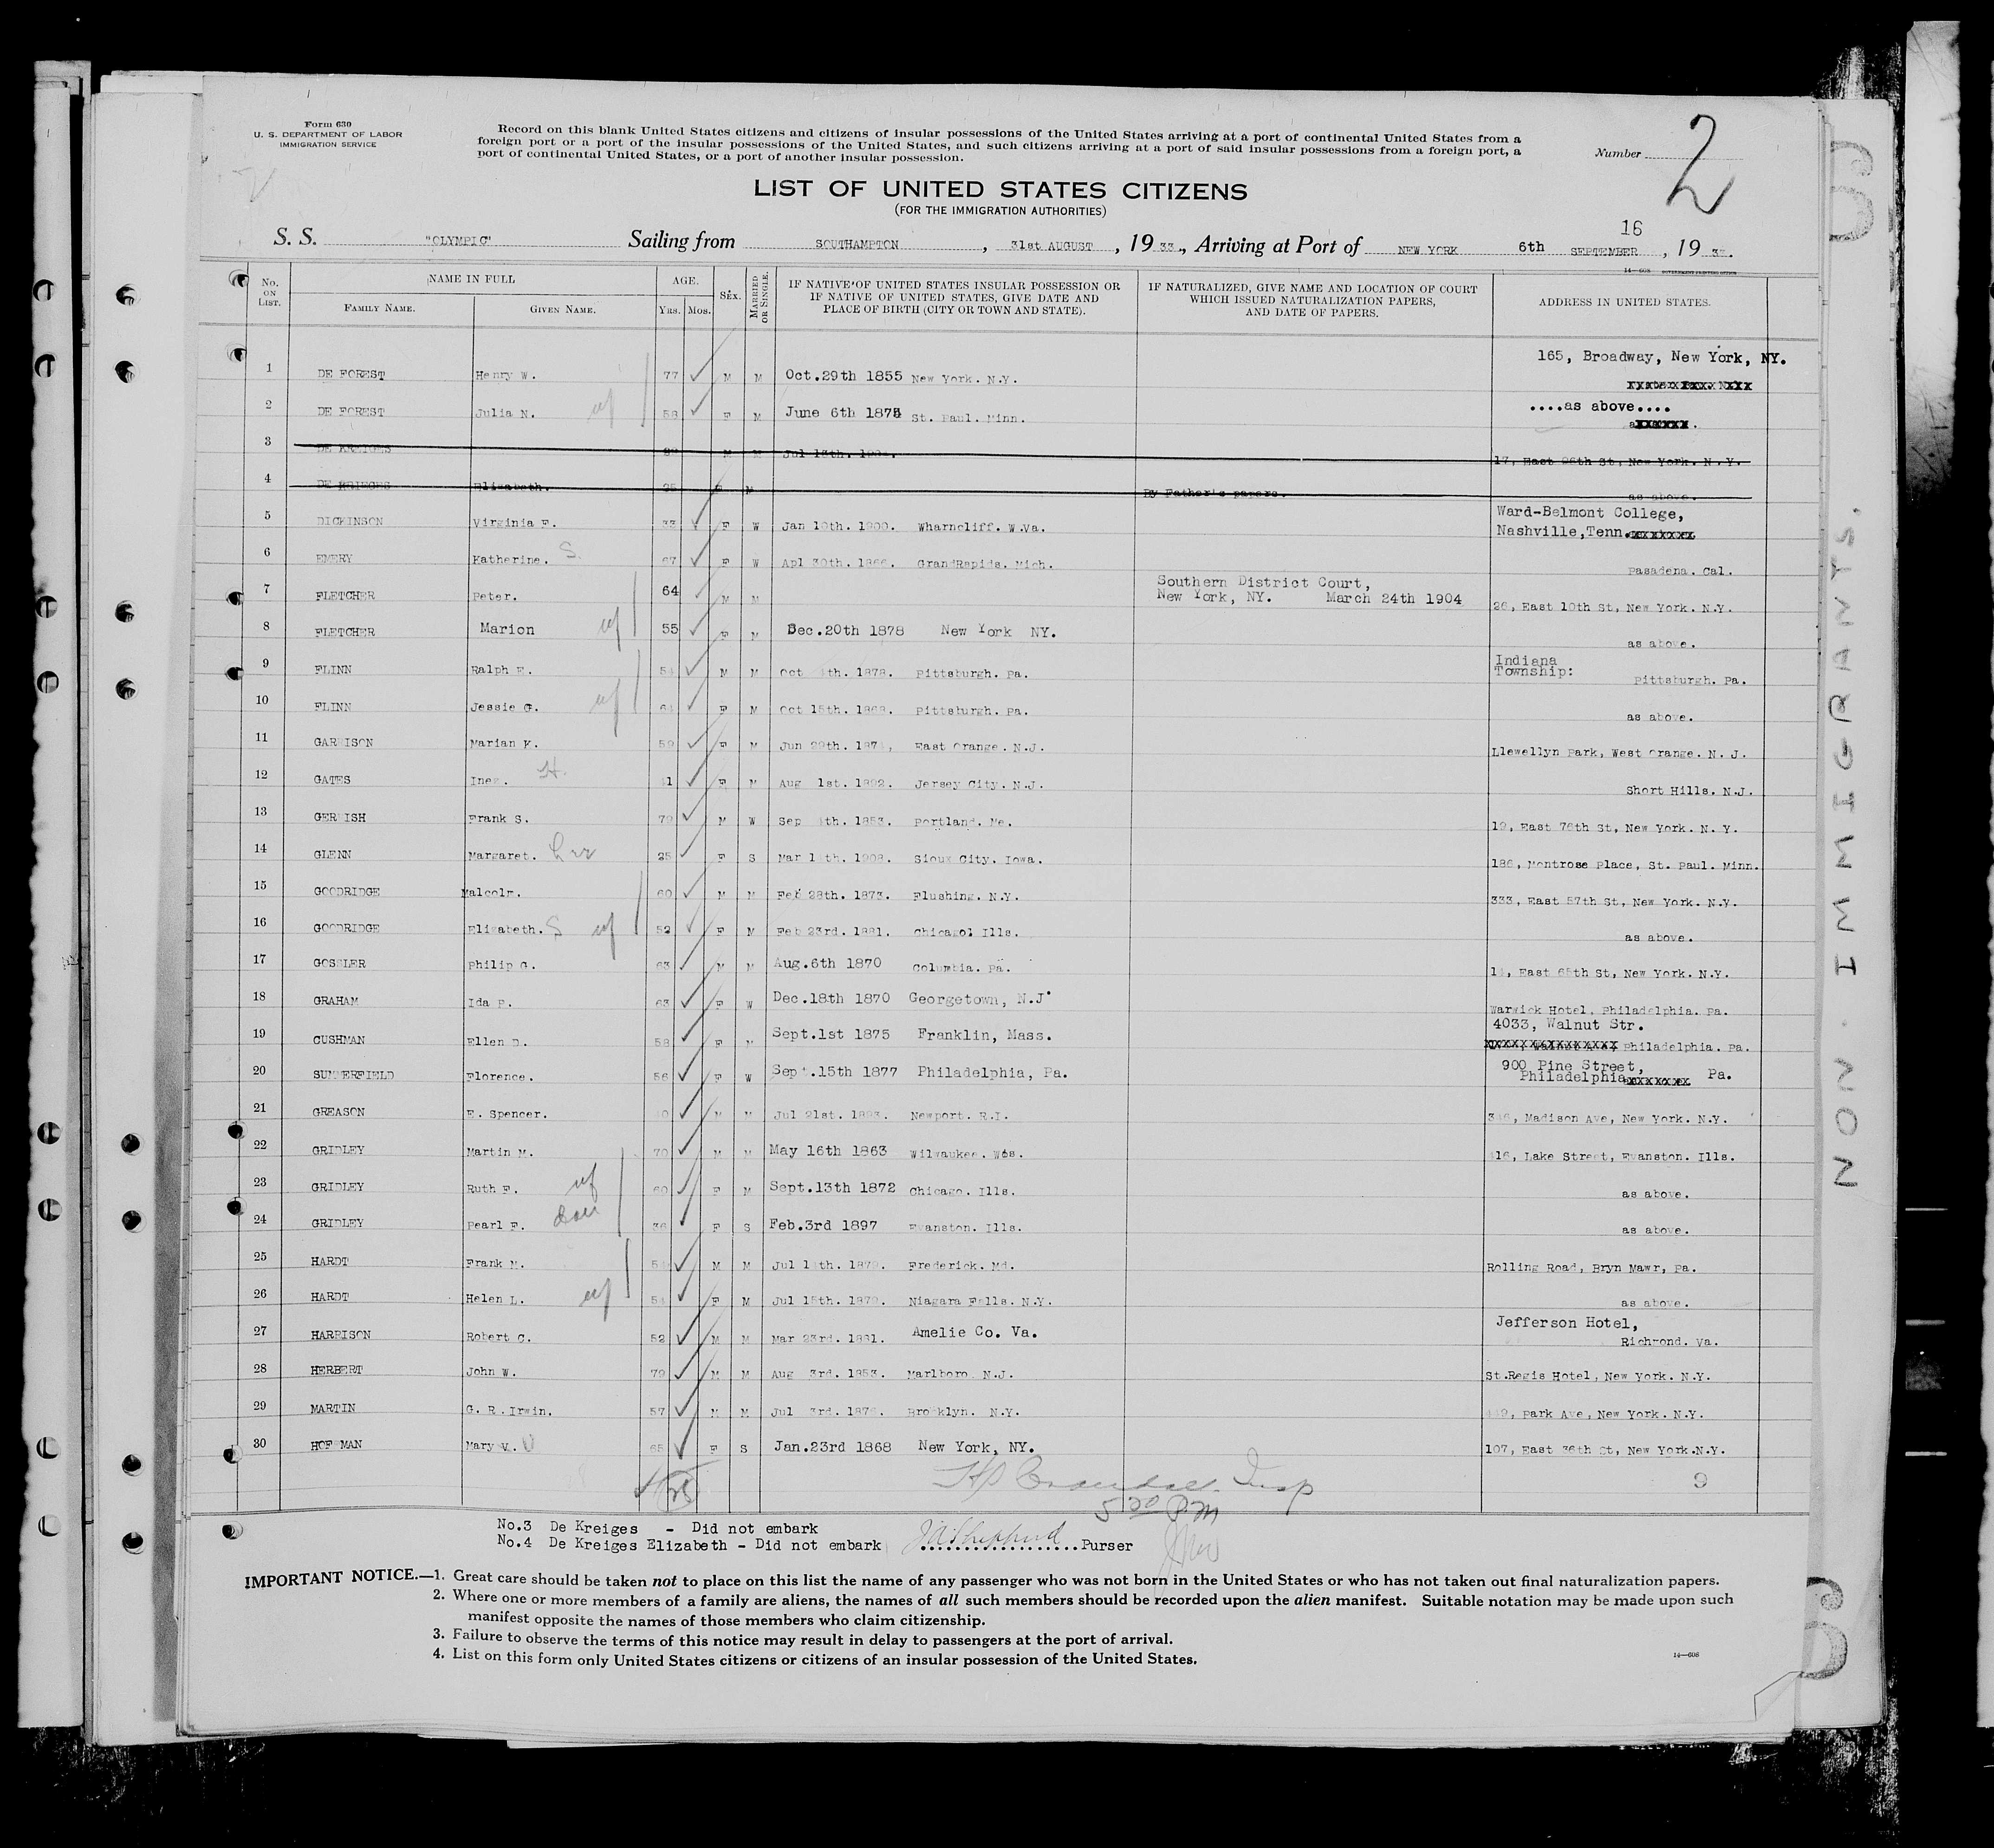 Form 630
U. S. DEPARTMENT OF LABOR
IMMIGRATION SERVICE
Record on this blank United States citizens and citizens of insular possessions of the United States arriving at a port of continental United States from a
foreign port or a port of the insular possessions of the United States, and such citizens arriving at a port of said insular possessions from a foreign port, a
port of continental United States, or a port of another insular possession.
Number 2
LIST OF UNITED STATES CITIZENS
(FOR THE IMMIGRATION AUTHORITIES)
16
S. S. "OLYMPIC" Sailing from SOUTHAMPTON, 31st AUGUST, 1933, Arriving at Port of NEW YORK 6th SEPTEMBER, 1933.
14—608 GOVERNMENT PRINTING OFFICE
No. ON LIST. NAME IN FULL AGE. SEX. MARRIED OR SINGLE. IF NATIVE OF UNITED STATES INSULAR POSSESSION OR IF NATIVE OF UNITED STATES, GIVE DATE AND PLACE OF BIRTH (CITY OR TOWN AND STATE). IF NATURALIZED, GIVE NAME AND LOCATION OF COURT WHICH ISSUED NATURALIZATION PAPERS, AND DATE OF PAPERS. ADDRESS IN UNITED STATES.
FAMILY NAME. GIVEN NAME. YRS. MOS.
1 DE FOREST Henry W. 77 M M Oct.29th 1855 New York. N.Y. 165, Broadway, New York, NY.
2 DE FOREST Julia N. wf 58 F M June 6th 1875 St. Paul. Minn. ....as above....
3 DE KREIGES M M 17, East 96th St, New York. N.Y.
4 DE KRIEGES Elizabeth. 25 F M By Father's papers. as above.
5 DICKINSON Virginia F. 33 F W Jan 10th. 1900. Wharncliff. W.Va. Ward-Belmont College,
Nashville,Tenn.
6 EMERY Katherine. S. 67 F W Apl 30th. 1866. GrandRapids. Mich. Pasadena. Cal.
7 FLETCHER Peter. 64 M M Southern District Court,
New York, NY. March 24th 1904 26, East 10th St, New York. N.Y.
8 FLETCHER Marion wf 55 F M Dec.20th 1878 New York NY. as above.
9 FLINN Ralph E. 54 M M Oct th. 1878. Pittsburgh. Pa. Indiana
Township: Pittsburgh. Pa.
10 FLINN Jessie G. wf 64 F M Oct 15th. 1868. Pittsburgh. Pa. as above.
11 GARRISON Marian K. 59 F M Jun 29th. 1874, East Orange. N.J. Llewellyn Park, West Orange. N. J.
12 GATES Inez. H. 41 F M Aug 1st. 1892. Jersey City. N.J. Short Hills. N.J.
13 GERRISH Frank S. 79 M W Sep th. 1853. Portland. Me. 19, East 76th St, New York. N.Y.
14 GLENN Margaret. 25 F S Mar 1 th. 1908. Sioux City. Iowa. 186, Montrose Place, St. Paul. Minn.
15 GOODRIDGE Malcolm. 60 M M Feb 28th. 1873. Flushing. N.Y. 333, East 57th St, New York. N.Y.
16 GOODRIDGE Elizabeth. S wf 52 F M Feb 23rd. 1881. Chicago. Ills. as above.
17 GOSSLER Philip G. 63 M M Aug.6th 1870 Columbia. Pa. 14, East 65th St, New York. N.Y.
18 GRAHAM Ida P. 63 F W Dec.18th 1870 Georgetown, N.J. Warwick Hotel, Philadelphia. Pa.
19 CUSHMAN Ellen D. 58 F M Sept.1st 1875 Franklin, Mass. 4033, Walnut Str.
Philadelphia. Pa.
20 SUMMERFIELD Florence. 56 F W Sept.15th 1877 Philadelphia, Pa. 900 Pine Street,
Philadelphia Pa.
21 GREASON E. Spencer. 40 M M Jul 21st. 1893. Newport. R.I. 346, Madison Ave, New York. N.Y.
22 GRIDLEY Martin M. 70 M M May 16th 1863 Wilwaukee. Wis. 416, Lake Street, Evanston. Ills.
23 GRIDLEY Ruth F. wf 60 F M Sept.13th 1872 Chicago. Ills. as above.
24 GRIDLEY Pearl F. dau 36 F S Feb.3rd 1897 Evanston. Ills. as above.
25 HARDT Frank M. 54 M M Jul 1 th. 1879. Frederick. Md. Rolling Road, Bryn Mawr, Pa.
26 HARDT Helen L. wf 54 F M Jul 15th. 1879. Niagara Falls. N.Y. as above.
27 HARRISON Robert C. 52 M M Mar 23rd. 1881. Amelie Co. Va. Jefferson Hotel,
Richmond. Va.
28 HERBERT John W. 79 M M Aug 3rd. 1853. Marlboro. N.J. St.Regis Hotel, New York. N.Y.
29 MARTIN G. R. Irwin. 57 M M Jul 3rd. 1876. Brooklyn. N.Y. Park Ave, New York. N.Y.
30 HOFFMAN Mary V. 65 F S Jan.23rd 1868 New York, NY. 107, East 36th St, New York.N.Y.
28 Insp
5 20 P.M
No.3 De Kreiges - Did not embark
No.4 De Kreiges Elizabeth - Did not embark ..................Purser
IMPORTANT NOTICE.—1. Great care should be taken not to place on this list the name of any passenger who was not born in the United States or who has not taken out final naturalization papers.
2. Where one or more members of a family are aliens, the names of all such members should be recorded upon the alien manifest. Suitable notation may be made upon such
manifest opposite the names of those members who claim citizenship.
3. Failure to observe the terms of this notice may result in delay to passengers at the port of arrival.
4. List on this form only United States citizens or citizens of an insular possession of the United States.
14—608
NON IMMIGRANTS.